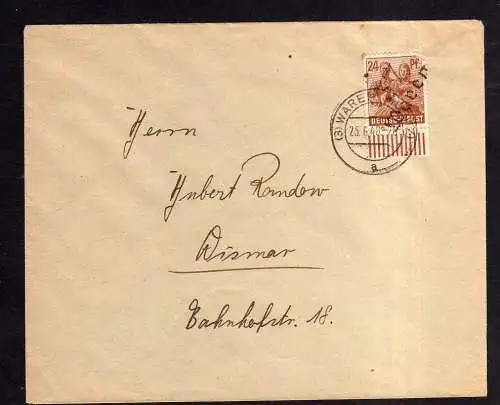 24 Pf.
DEUTSCHE POST
(3) WARE
a
Herrn
Hubert Randow
Wismar
Bahnhofstr. 18.